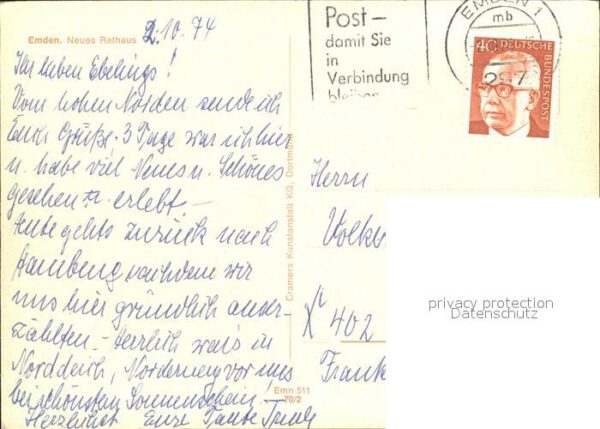 Emden. Neues Rathaus
2.10.74
Ihr lieben Ebelings!
Vom hohen Norden sende ich
Euch Grüße. 3 Tage war ich hier
u. habe viel Neues u. Schönes
gesehen u. erlebt –
Heute gehts zurück nach
Hamburg nachdem wir
uns hier gründlich
zählten. – Herrlich war's in
Norddeich, Norderney vor uns
bei schönstem Sonnenschein –
Herzlichst Eure Tante
Cramers Kunstanstalt KG, Dortmund
Emn 511
70/2
Post –
damit Sie
in
Verbindung
bleiben
EMDEN 1
mb
297
40 DEUTSCHE
BUNDESPOST
Herrn
Volker
402
Frank
privacy protection
Datenschutz